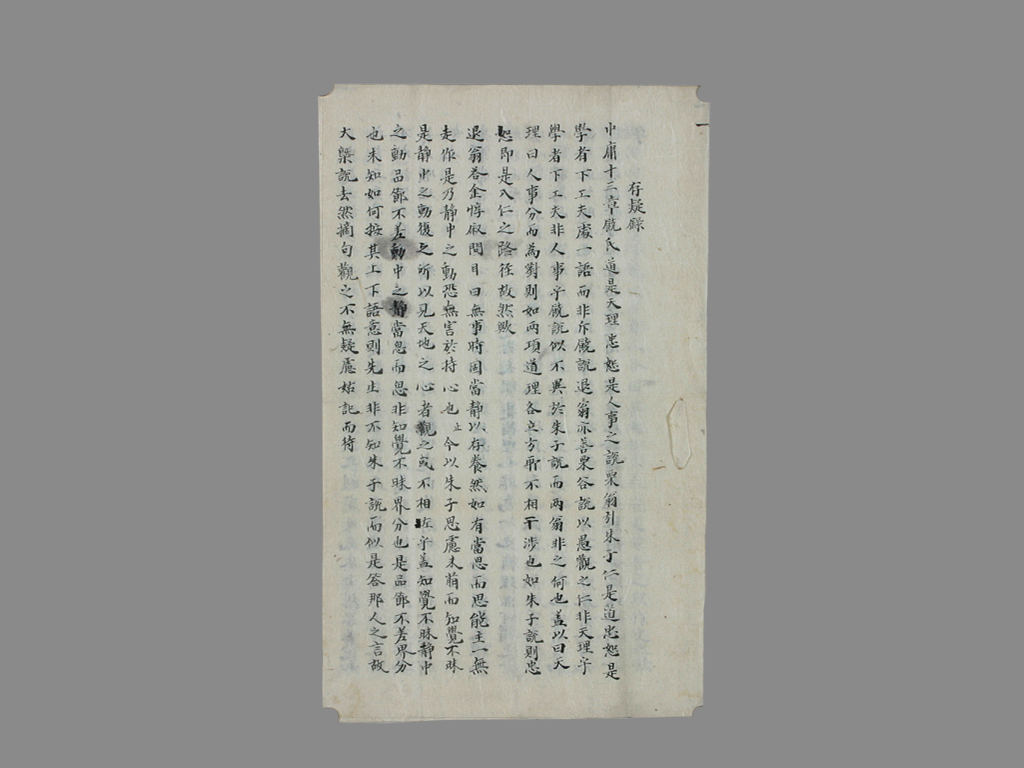 存疑錄
中庸十三章饒氏道是天理忠恕是人事之說栗翁引朱子仁是道忠恕是
學者下工夫處一語而非斥饒說退翁亦善栗谷說以愚觀之仁非天理乎
學者下工夫非人事乎饒說似不異於朱子說而兩翁非之何也盖以曰天
理曰人事分而為對則如兩項道理各立方所不相干涉也如朱子說則忠
恕即是入仁之路徑故然歟
退翁答金惇叙問目曰無事時固當靜以存養然如有當思而思能主一無
走作是乃靜中之動恐無害於持心也止今以朱子思慮未萌而知覺不昧
是靜中之動復之所以見天地之心者觀之或不相近乎盖知覺不昧靜中
之動品節不差動中之靜當思而思非知覺不昧界分也是品節不差界分
也未知如何按其上下語意則先生非不知朱子說而似是答那人之言故
大槩說去然摘句觀之不無疑慮姑記而待